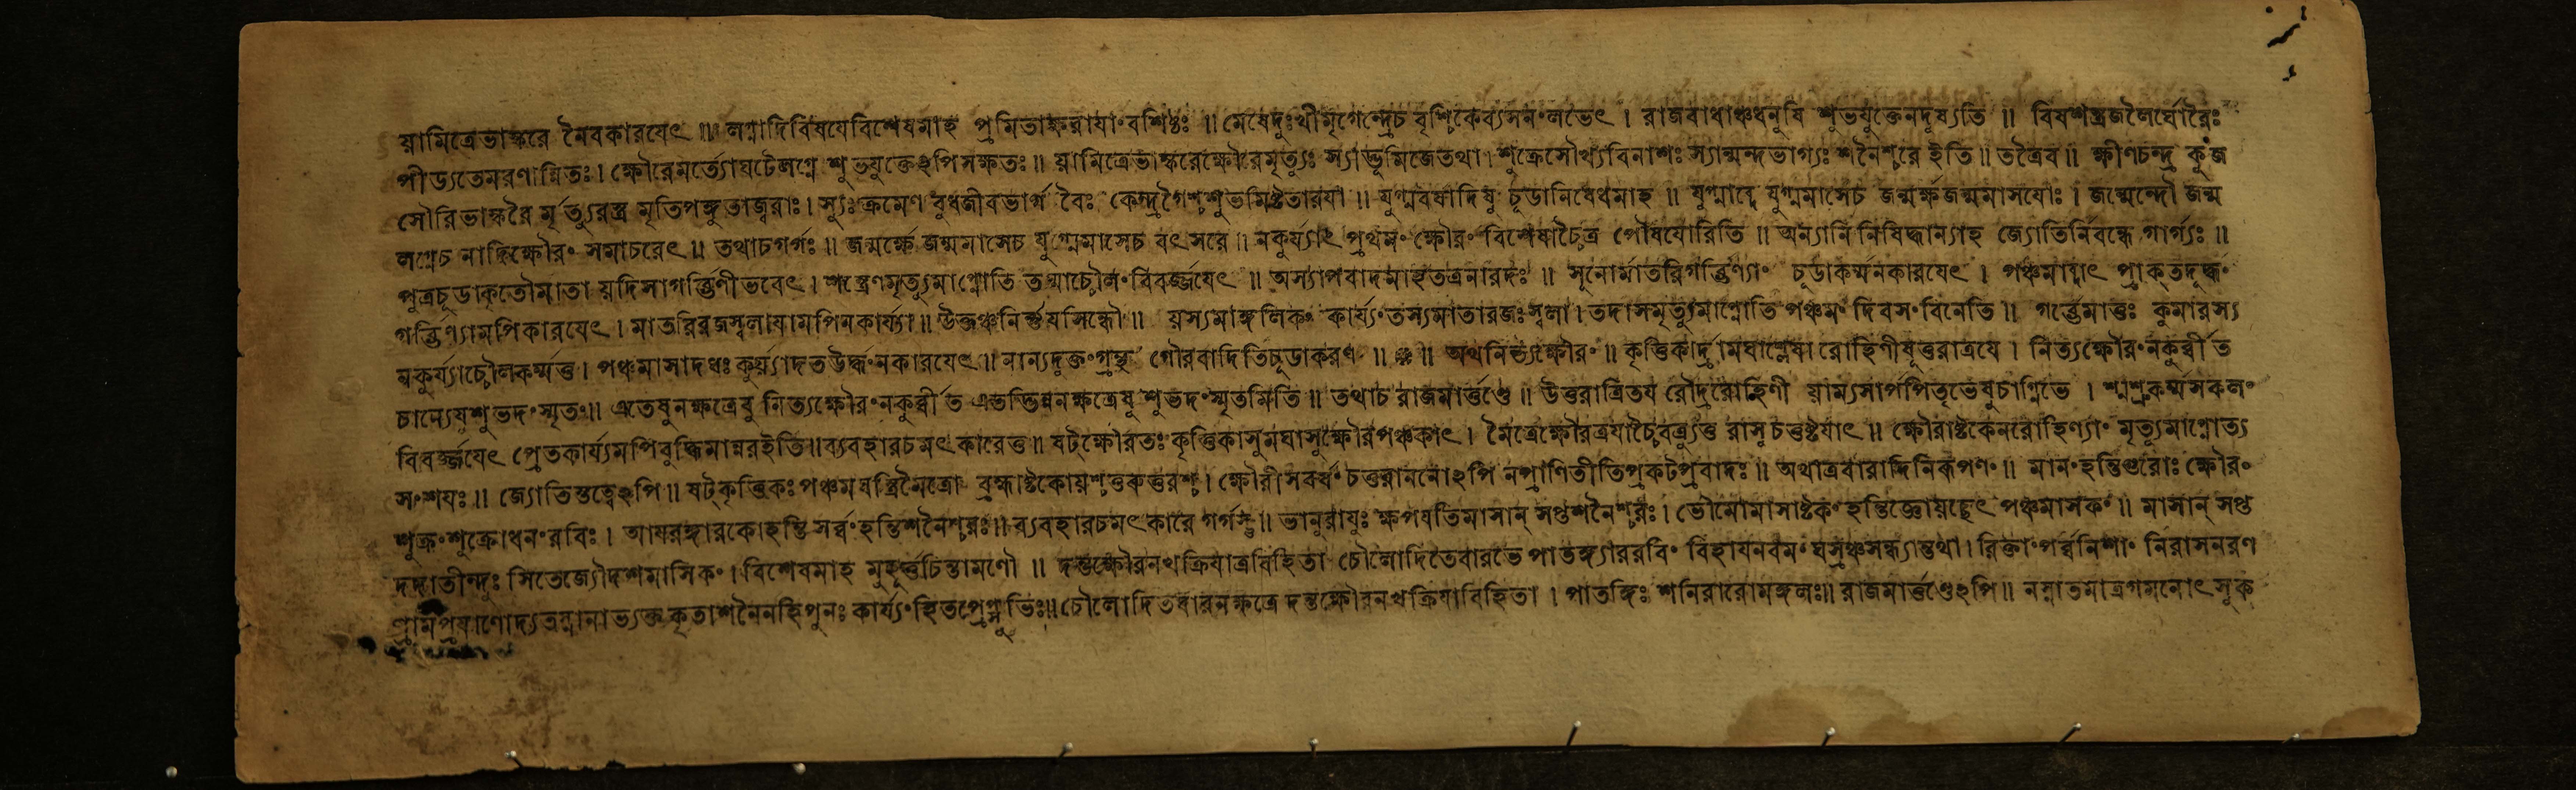 য়ামিত্রেভাস্করে নৈবকারযেৎ ॥ লগ্নাদিবিষযেবিশেষমাহ প্রমিতাক্ষরাযাং বশিষ্ঠঃ ॥ মেষেদুঃখীমৃগেন্দ্রেচ বৃশ্চিকেব্যসনং লভেৎ । রাজবাধাঞ্চধনুষি শুভযুক্তেনদূষ্যতি ॥ বিষশস্ত্রজলৈর্ঘোরৈঃ
পীড্যতেমরণান্বিতঃ । ক্ষৌরেমর্ত্যোঘটেলগ্নে শুভযুক্তেঽপিসক্ষতঃ ॥ য়ামিত্রেভাস্করেক্ষৌরেমৃত্যুঃ স্যাদ্ভূমিজেতথা । শুক্রেসৌখ্যবিনাশঃ স্যান্মন্দভাগ্যঃ শনৈশ্চরে ইতি ॥ তত্রৈব ॥ ক্ষীণচন্দ্র কুজ
সৌরিভাস্করৈ র্মৃত্যুরস্ত্র মৃতিপঙ্গুতাজ্বরাঃ । স্যুঃ ক্রমেণ বুধজীবভার্গ বৈঃ কেন্দ্রগৈশ্চশুভমিষ্টতারযা ॥ যুগ্মবর্ষাদিষু চূডানিষেধমাহ ॥ যুগ্মাব্দে যুগ্মমাসেচ জন্মর্ক্ষজন্মমাসযোঃ । জন্মেন্দৌ জন্ম
লগ্নেচ নাদিক্ষৌরং সমাচরেৎ ॥ তথাচগর্গঃ ॥ জন্মর্ক্ষে জন্মমাসেচ যুগ্মমাসেচ বৎসরে ॥ নকুর্য্যাৎ প্রথমং ক্ষৌরং বিশেষাচ্চৈত্র পৌষযোরিতি ॥ অন্যানি নিষিদ্ধান্যাহ জ্যোতির্নিবন্ধে গার্গ্যঃ ॥
পুত্রচূডাকৃতৌমাতা য়দিসাগর্ব্ভিণীভবেৎ । শস্ত্রেণমৃত্যুমাপ্নোতি তস্মাচ্চৌলং বিবর্জ্জযেৎ ॥ অস্যাপবাদমাহতত্রনারদঃ ॥ সূনোর্মাতরিগর্ব্ভিণ্যাং চূডাকর্ম্মনকারযেৎ । পঞ্চমাব্দাৎ প্রাক্তদূর্দ্ধং
গর্ব্ভিণ্যামপিকারযেৎ । মাতরিরজস্বলাযামপিনকার্য্যা ॥ উক্তঞ্চনির্ণ্ণযসিন্ধৌ ॥ য়স্যমাঙ্গলিকং কার্য্যং তস্যমাতারজঃস্বলা । তদাসমৃত্যুমাপ্নোতি পঞ্চমং দিবসং বিনেতি ॥ গর্ব্ভেমাতুঃ কুমারস্য
নকুর্য্যাচ্চৌলকর্ম্মতু । পঞ্চমাসাদধঃ কুর্য়্যাদতউর্দ্ধং নকারযেৎ ॥ নান্যদুক্তং গ্রন্থ গৌরবাদিতিচূডাকরণ ॥ ❁ ॥ অথনিত্যক্ষৌরং ॥ কৃত্তিকার্দ্রামঘাশ্লেষা রোহিণীষূত্তরাত্রযে । নিত্যক্ষৌরং নকুর্ব্বীত
চান্যেষশুভদং স্মৃতঃ ॥ এতেষুনক্ষত্রেষু নিত্যক্ষৌরং নকুর্ব্বীত এতদ্ভিন্ননক্ষত্রেষু শুভদং স্মৃতমিতি ॥ তথাচ রাজমার্ত্তণ্ডে ॥ উত্তরাত্রিতয রৌদ্ররোহিণী য়াম্যসার্পপিতৃভেষুচাগ্নিভে । শ্মশ্রুকর্ম্মসকলং
বিবর্জ্জযেৎ প্রেতকার্য্যমপিবুদ্ধিমান্নরইতি ॥ ব্যবহারচমৎকারেতু ॥ ষট্ক্ষৌরতঃ কৃত্তিকাসুমঘাসুক্ষৌরপঞ্চকাৎ । মৈত্রেক্ষৌরত্রযাচ্চৈব রাসুচতুষ্টযাৎ ॥ ক্ষৌরাষ্টকেনরোহিণ্যাং মৃত্যুমাপ্নোত্য
সংশযঃ ॥ জ্যোতিস্তত্বেঽপি ॥ ষট্কৃত্তিকঃ পঞ্চমঘস্ত্রিমৈত্রো ব্রহ্মাষ্টকোয়শ্চতুরুত্তরশ্চ । ক্ষৌরীসবর্ষং চতুরাননোঽপি নপ্রাণিতীতিপ্রকটপ্রবাদঃ ॥ অথাত্রবারাদিনিরূপণং ॥ মানং হন্তিগুরোঃ ক্ষৌরং
শুক্রং শুক্রোধনং রবিঃ । আযুরঙ্গারকোহন্তি সর্ব্বং হন্তিশনৈশ্চরঃ ॥ ব্যবহারচমৎকারে গর্গস্তু ॥ ভানুরাযুঃ ক্ষপযতিমাসান্ সপ্তশনৈশ্চরঃ । ভৌমোমাসাষ্টকং হন্তিজ্ঞোয়চ্ছেৎ পঞ্চমাসকং ॥ মাসান্ সপ্ত
দদাতীন্দুঃ সিতেজ্যৌদশমাসিকং । বিশেষমাহ মুহূর্ত্তচিন্তামণৌ ॥ দন্তক্ষৌরনখক্রিযাত্রবিহিতা চৌলোদিতেবারভে পাতঙ্গ্যাররবিং বিহাযনবমং ঘস্রঞ্চসন্ধ্যান্তথা । রিক্তাং পর্ব্বনিশাং নিরাসনরণ
গ্রামপ্রযাণোদ্যতস্নানাভ্যক্ত কৃতাশনৈনহিপুনঃ কার্য্যং হিতপ্রেপ্সুভিঃ ॥ চৌলোদিতবারনক্ষত্রে দন্তক্ষৌরনখক্রিযাবিহিতা । পাতঙ্গিঃ শনিরারোমঙ্গলঃ ॥ রাজমার্ত্তণ্ডেঽপি ॥ নস্নাতমাত্রগমনোৎসুক